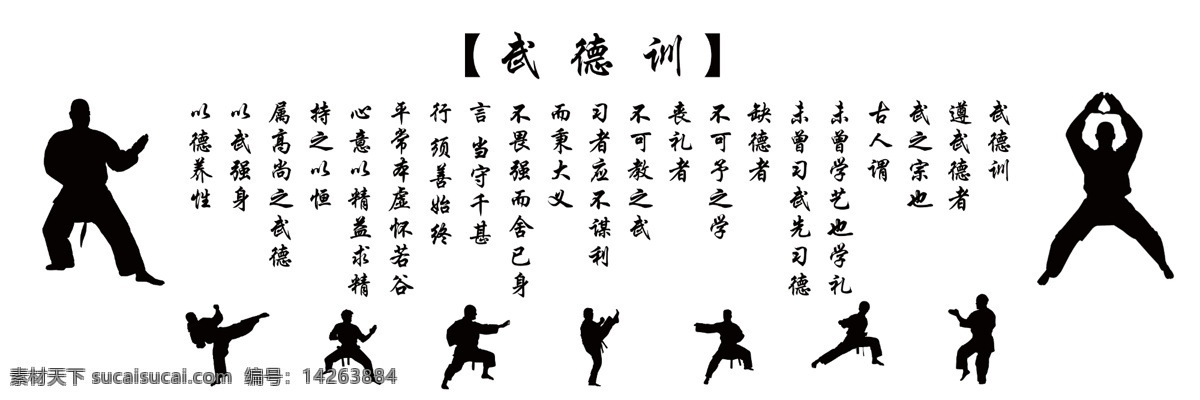 【武德训】
武德训
遵武德者
武之宗也
古人谓
未曾学艺也学礼
未曾习武先习德
缺德者
不可予之学
丧礼者
不可教之武
习者应不谋利
而秉大义
不畏强而舍己身
言当守千甚
行须善始终
平常本虚怀若谷
心意以精益求精
持之以恒
属高尚之武德
以武强身
以德养性
素材天下 sucaisucai.com 编号：14263884